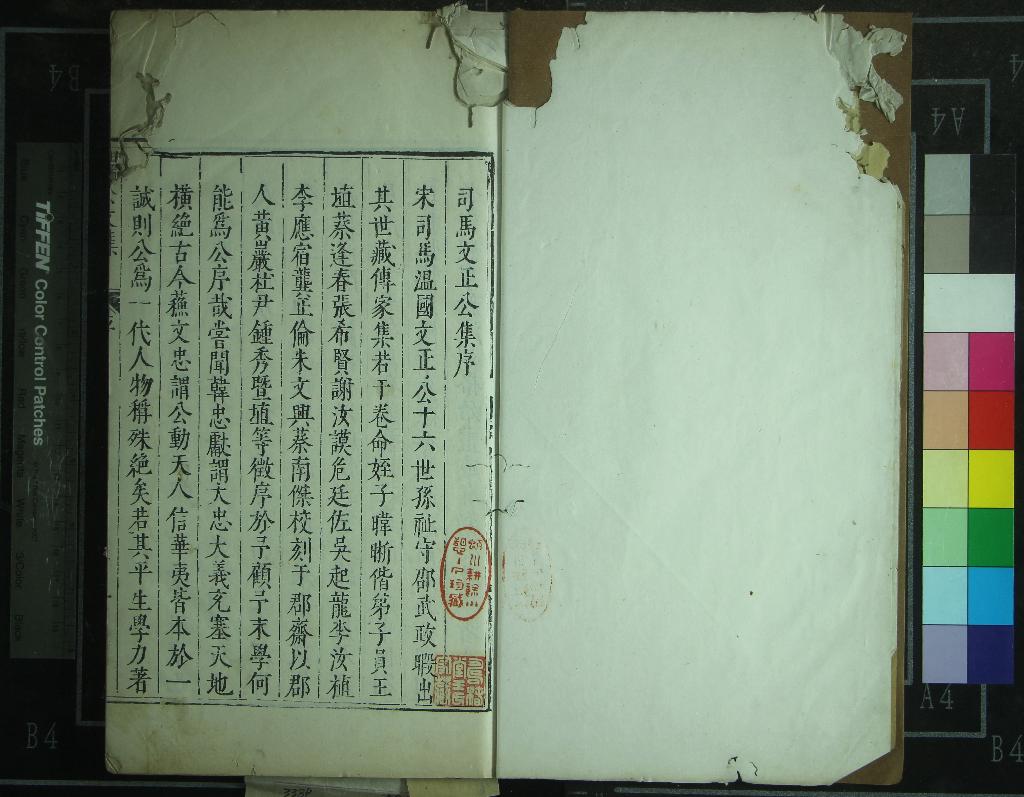 司馬文正公集序
宋司馬溫國文正公十六世孫祉守邵武政暇出
其世藏傳家集若干卷命姪子暐晣偕第子員王
埴蔡逢春張希賢謝汝謨危廷佐吳起龍李汝楨
李應宿龔並倫朱文興蔡南傑校刻于郡齋以郡
人黃巖杜尹鍾秀暨埴等徵序於予顧予末學何
能為公序哉嘗聞韓忠獻謂大忠大義充塞天地
橫絶古今蘇文忠謂公動天人信華夷皆本於一
誠則公為一代人物稱殊絶矣若其平生學力著
TIFFEN Color Control Patches
B4
A4
A4
B4
B4